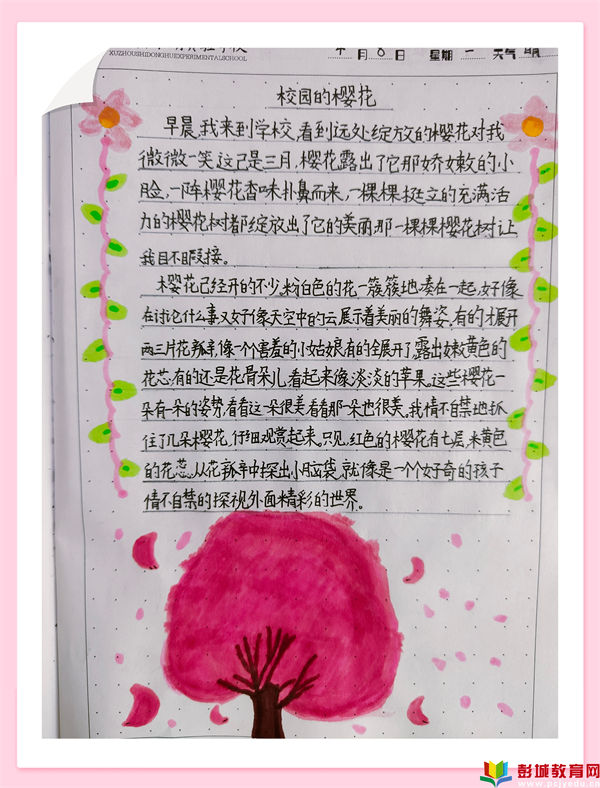 XUZHOUSHIDONGHUEXPERIMENTALSCHOOL
月8日 星期一 天气 晴
校园的樱花
早晨,我来到学校,看到远处绽放的樱花对我
微微一笑,这已是三月,樱花露出了它那娇嫩的小
脸,一阵樱花香味扑鼻而来,一棵棵挺立的充满活
力的樱花树都绽放出了它的美丽,那一棵棵樱花树让
我目不暇接。
樱花已经开的不少,粉白色的花一簇簇地凑在一起,好像
在讨论什么事,又好像天空中的云展示着美丽的舞姿,有的才展开
两三片花瓣,像一个害羞的小姑娘,有的全展开了,露出嫩黄色的
花芯,有的还是花骨朵儿,看起来像淡淡的苹果。这些樱花一
朵有一朵的姿势,看看这一朵很美,看看那一朵也很美。我情不自禁地抓
住了几朵樱花,仔细观赏起来。只见,红色的樱花有七层,米黄色
的花芯。从花瓣中探出小脑袋,就像是一个个好奇的孩子
情不自禁的探视外面精彩的世界。
彭城教育网
www.pcjyedu.cn